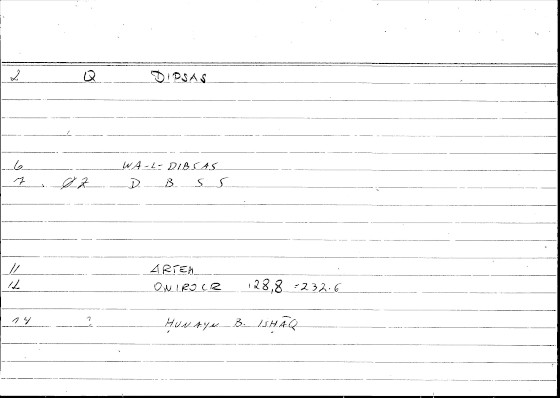 2 Q DIPSAS
6 WA-L-DIBSAS
7 . Ø2 D B S S
11 ARTEM
12 ONIROCR 128,8 = 232.6
14 ? ḤUNAYN B. ISḤĀQ